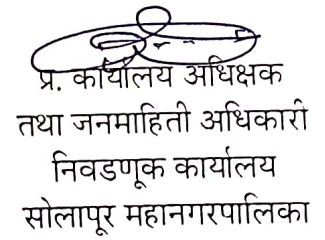 प्र. कार्यालय अधिक्षक
तथा जनमाहिती अधिकारी
निवडणूक कार्यालय
सोलापूर महानगरपालिका